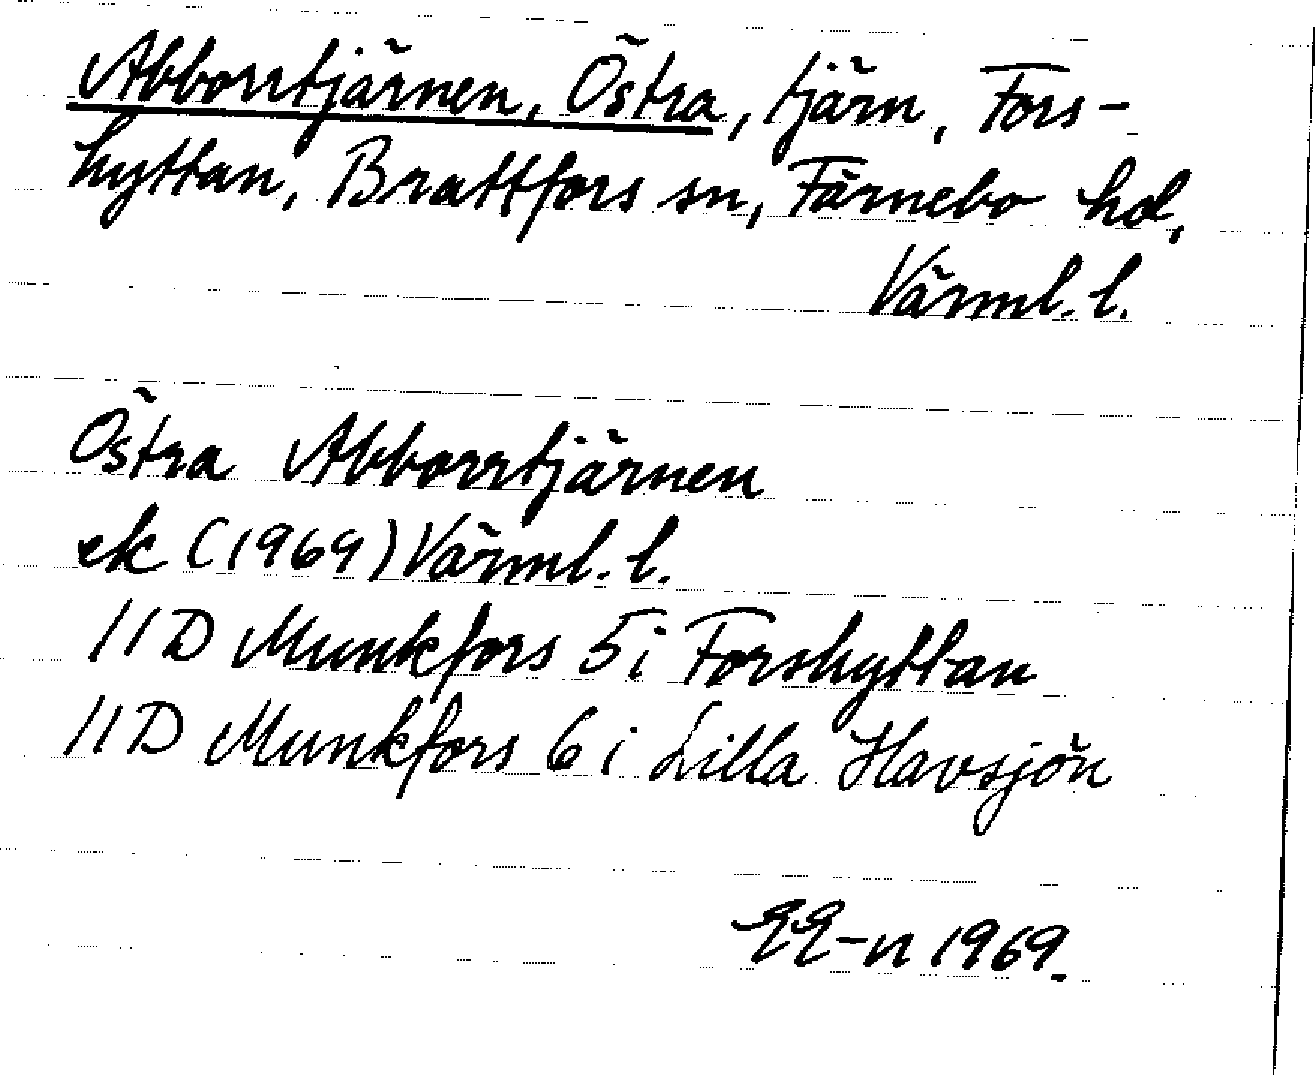 Abborrtjärnen, Östra, tjärn, Fors-
hyttan, Brattfors sn, Färnebo hd,
Värml. l.
Östra Abborrtjärnen
ek (1969) Värml. l.
11D Munkfors 5i Forshyttan
11D Munkfors 6i Lilla Havsjön
EE-n 1969.